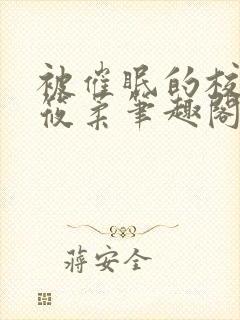 被催眠的校
筱柔笔趣阁
蒋安全